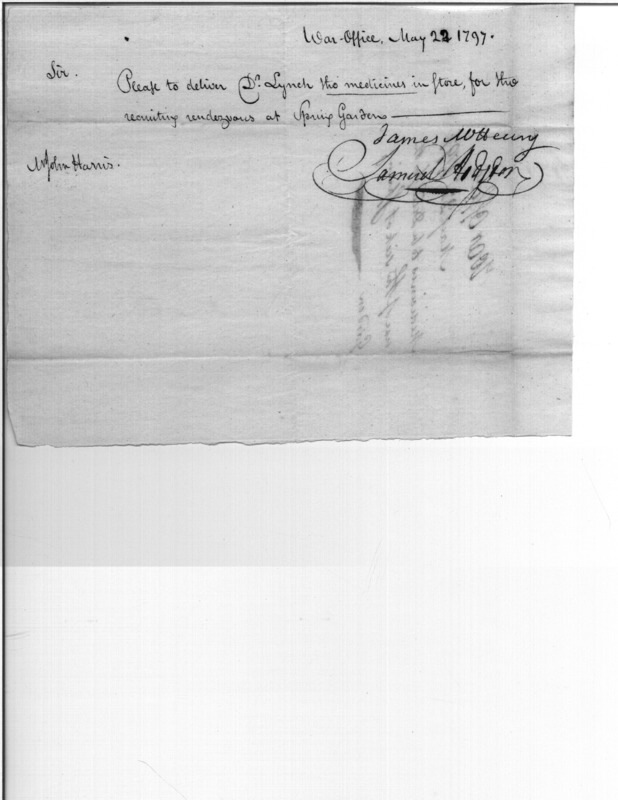 War-Office, May 22 1797.
Sir.
Please to deliver Dr. Lynch the medicines in store, for the
recruiting rendezvous at Spring Garden
James McHenry
Samuel Hodgdon
Mr John Harris.